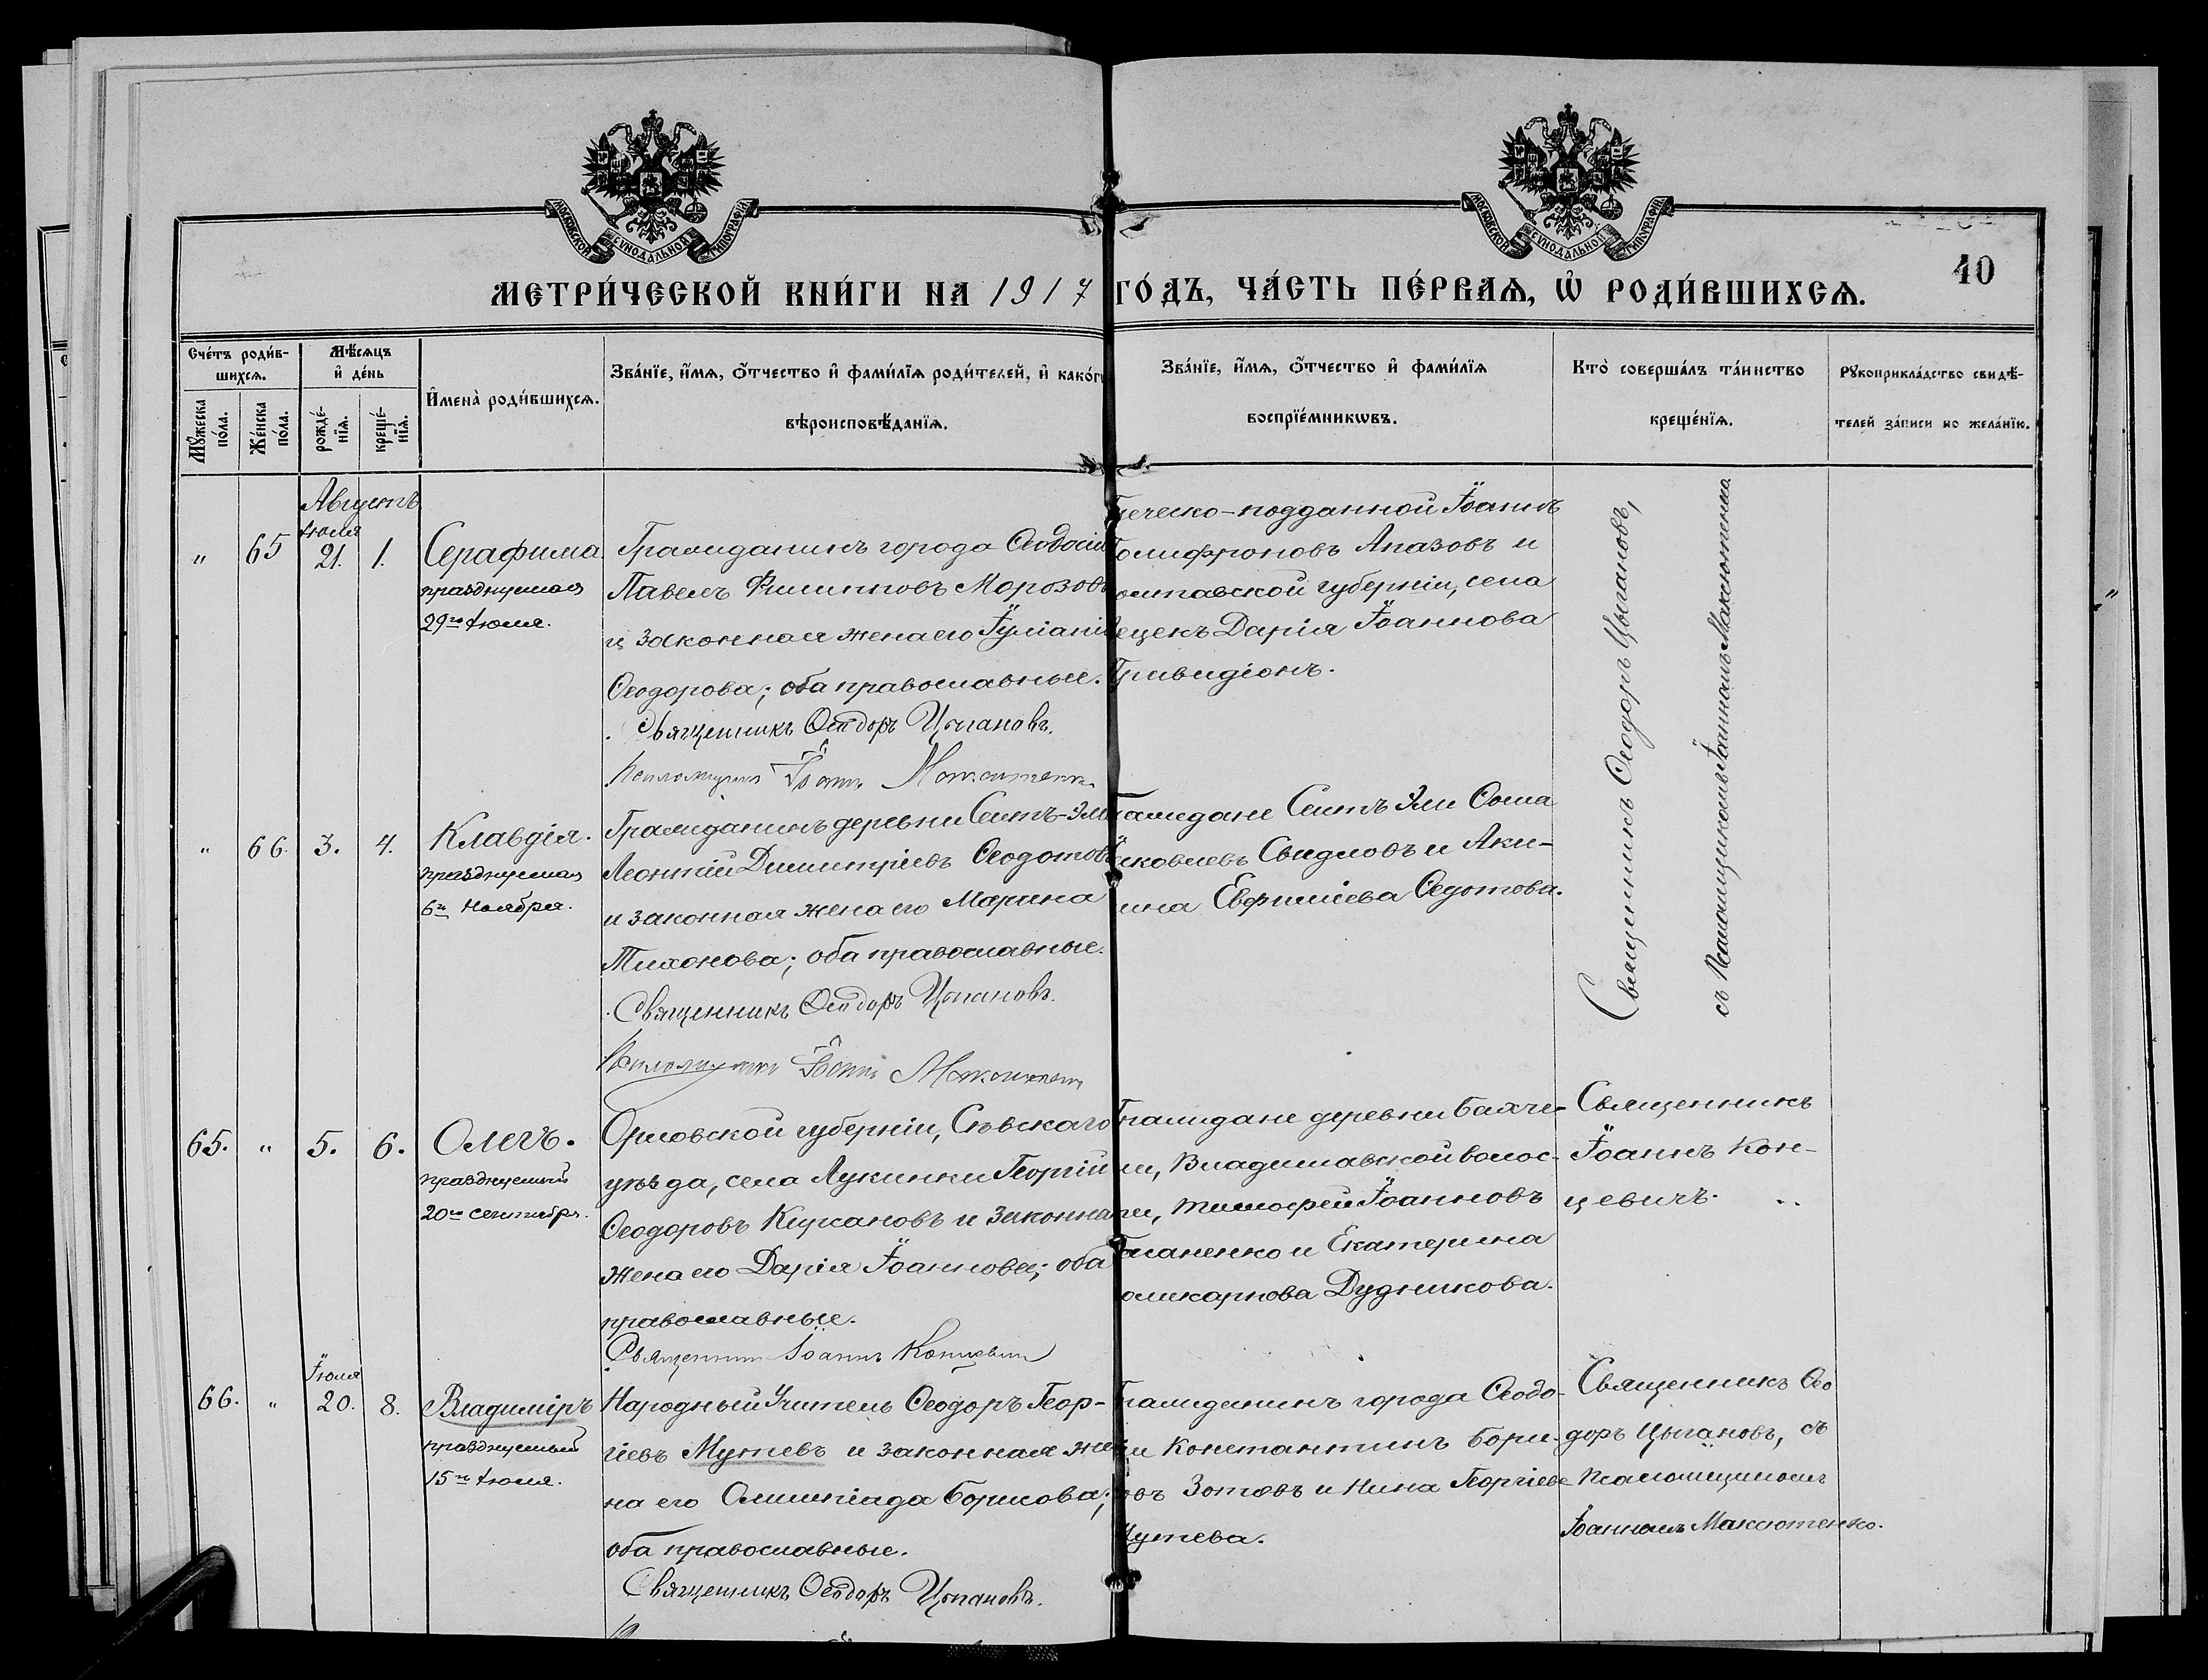 МОСКОВСКОЙ СѴНОДАЛЬНОЙ ТИПОГРАФІИ
МОСКОВСКОЙ СѴНОДАЛЬНОЙ ТИПОГРАФІИ
40
МЕТРИ́ЧЕСКОЙ КНИ́ГИ НА 1917 ГО́ДЪ, ЧА́СТЬ ПЕ́РВАѦ, Ѡ҆ РОДИ́ВШИХСѦ.
Сче́тъ роди́в-
шихсѧ.
Мꙋ́жеска по́ла.
Же́нска по́ла.
Мѣ́сѧцъ
и҆ де́нь
рожде́-
нїѧ.
креще́-
нїѧ.
И҆мена̀ роди́вшихсѧ.
Зва́нїе, и҆́мѧ, ѻ҆́тчество и҆ фами́лїѧ роди́телей, и҆ како́гѡ
вѣроисповѣ́данїѧ.
Зва́нїе, и҆́мѧ, ѻ҆́тчество и҆ фами́лїѧ
воспрїе́мникѡвъ.
Кто̀ соверша́лъ та́инство
креще́нїѧ.
Рꙋкоприкла́дство свидѣ́-
телей за́писи по жела́нїю.
Августъ
„ 65 Іюля 21. 1.
Серафима
празднуемая
29го Іюля.
Гражданинъ города Ѳеодосіи
Павелъ Филипповъ Морозовъ
и законная жена его Іуліанія
Ѳеодорова; оба православные.
Священникъ Ѳеодоръ Цыгановъ.
Псаломщикъ Іоаннъ Максютенко
реческо-подданной Іоаннъ
Апазовъ и
олтавской губерніи, села
Дарія Іоаннова
Священникъ Ѳеодоръ Цыгановъ,
съ Псаломщикомъ Іоанномъ Максютенко.
„ 66. 3. 4.
Клавдія.
празднуемая
6го Ноября.
Гражданинъ деревни Сеитъ-Эли
Леонтій Димитріевъ Ѳеодотовъ
и законная жена его Марина
Тихонова; оба православные.
Священникъ Ѳеодоръ Цыгановъ.
Псаломщикъ Іоаннъ Максютенко
раждане Сеитъ Эли Ѳома
Яковлевъ и Аки-
лина Евфиміева Ѳедотова.
65. „ 5. 6.
Олегъ.
празднуемый
20го Сентября.
Орловской губерніи, Сѣвскаго
уѣзда, села Лукинки Георгій
Ѳеодоровъ Кирсановъ и законная
жена его Дарія Іоаннова; оба
православные.
Священникъ Іоаннъ Концевичъ
Граждане деревни Бахче-
ли, Владиславской волос-
ти, Тимофей Іоанновъ
и Екатерина
оликарпова Дудникова.
Священникъ
Іоаннъ Кон-
цевичъ.
66. „ Іюля 20. 8.
Владиміръ
празднуемый
15го Іюля.
Народный Учитель Ѳеодоръ Геор-
гіевъ Мутевъ и законная же-
на его Олимпіада Борисова;
оба православные.
Священникъ Ѳеодоръ Цыгановъ.
Гражданинъ города Ѳеодо-
сіи Константинъ Бори-
овъ Зотовъ и Нина Георгіева
Мутева.
Священникъ Ѳео
доръ Цыгановъ, съ
Псаломщикомъ
Іоанномъ Максютенко.